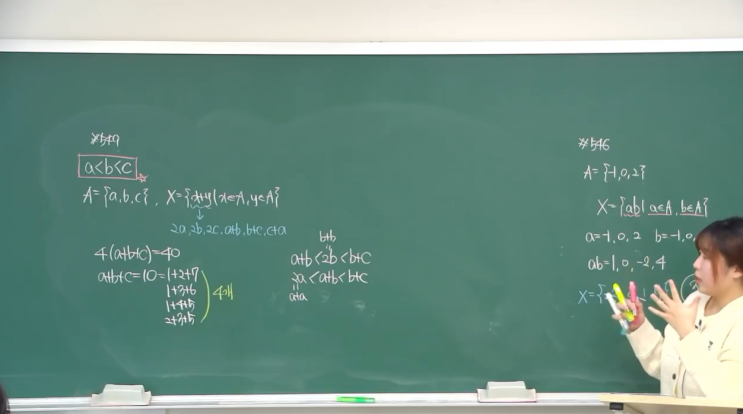 *549
a<b<c
A={a,b,c}, X={x+y|x∈A, y∈A}
2a, 2b, 2c, a+b, b+c, c+a
4(a+b+c)=40
a+b+c=10=1+2+7
1+3+6
1+4+5
2+3+5
4개
b+b
a+b<2b<b+c
2a<a+b<b+c
a+a
*546
A={-1,0,2}
X={ab|a∈A, b∈A}
a=-1,0,2 b=-1,0,
ab=1,0,-2,4
X={